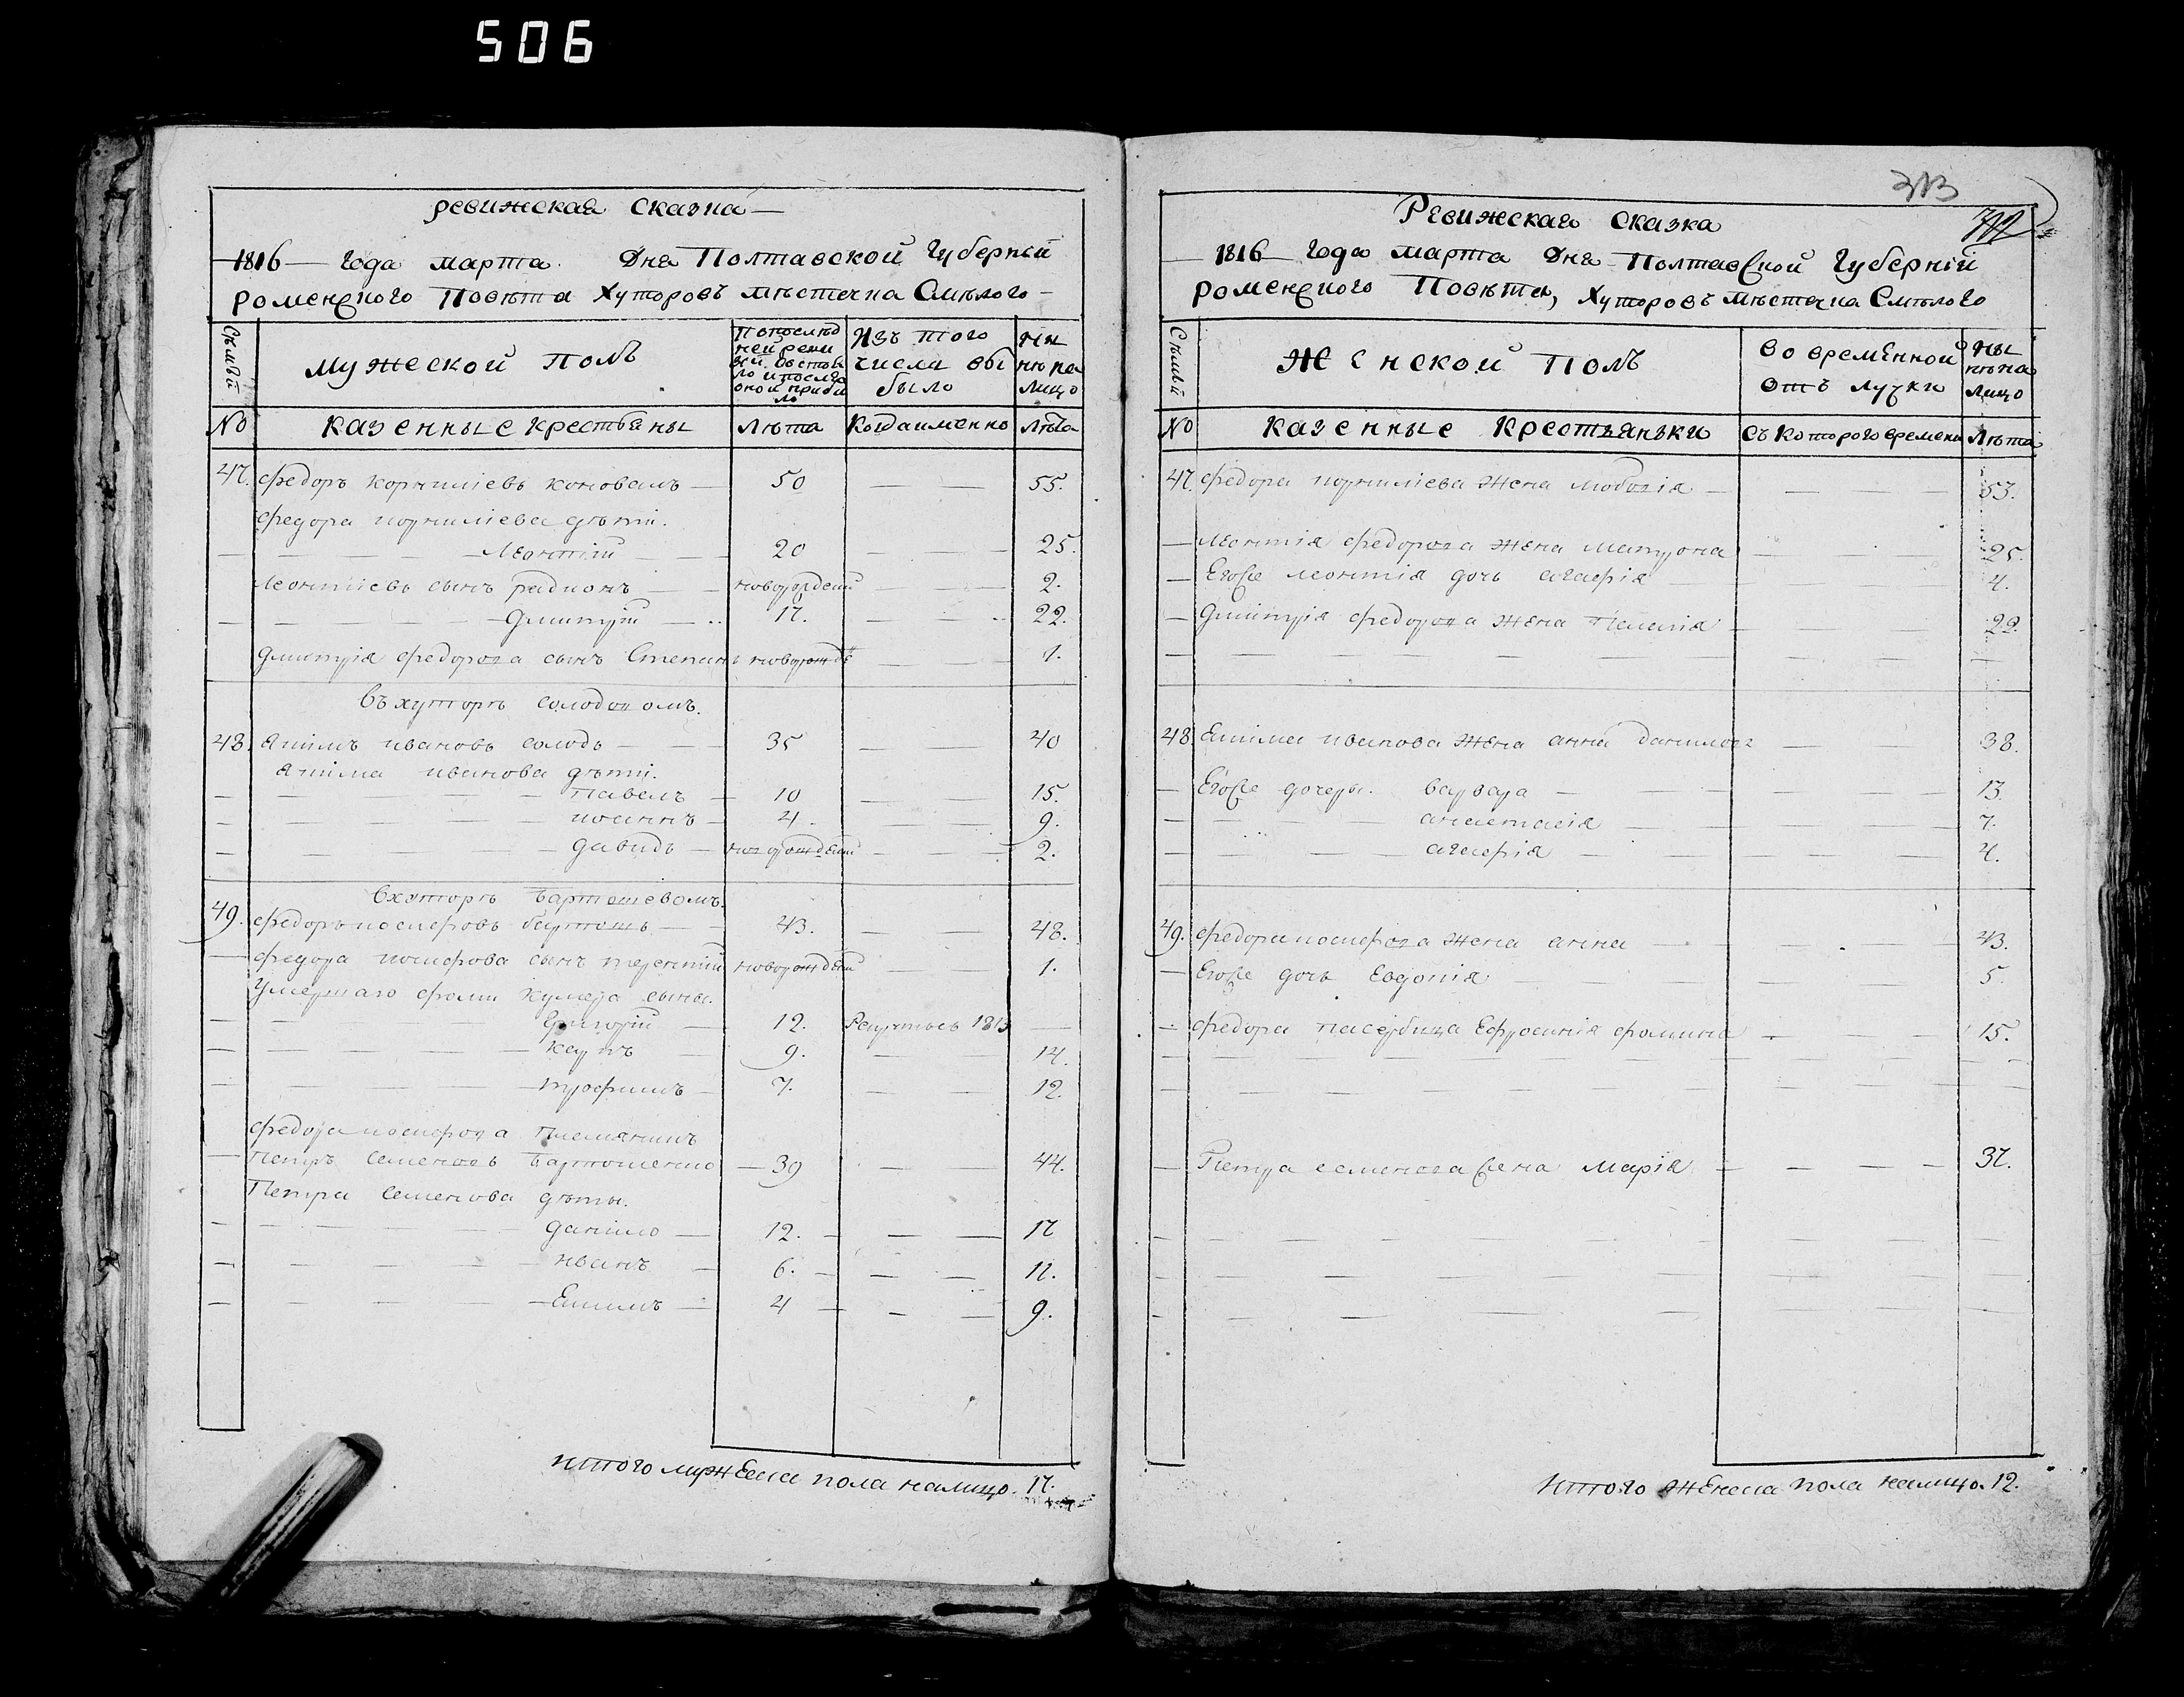 506
ревижская сказка —
— 1816 — года марта Дня Полтавской Губерный
роменского Повѣта Хуторовъ мѣстечка Смѣлого —
Сѣмьй
мужеской полъ
Изъ того числа выбыло
Ны нѣ на лицо
№ казенные крестьяны лѣта Когда именно лѣта
47. Федоръ корниліевъ коновалъ — 50 — — 55.
Федора корниліева дѣти.
— — — — Леонтій — — 20 — — 25.
леонтіевъ сынъ радионъ — — новорожденъ — — 2.
— — — — Дмитрій — 17. — 22.
Дмитрія Федорова сынъ Степанъ новорожде — — 1.
въ хуторѣ солодовомъ.
48. Якимъ ивановъ солодъ — 35 — 40
Якима иванова дѣти.
— — — — павелъ — 10 — 15.
— — — — иоаннъ — 4. — — 9.
— — — — давидъ — новорожденъ — — 2.
в хуторѣ бартошевомъ.
49. Федоръ иосифовъ бартошъ — — 43. — — 48.
— Федора иосифова сынъ терентій новорожденъ — — 1.
Умершаго фомы сыны.
— — — — Григорій — 12. Рекрутъ въ 1813 —
— — — — карпъ — 9. — 14.
— — — — трофимъ — 7. — — 12.
Федора иосифова племянникъ
— Петръ Семеновъ бартошенко — 39 — 44.
Петра Семенова дѣты.
— — — — данило — 12. — — — 17
— — — — иванъ — 6. — — — 11.
— — — — Екимъ — 4 — — — 9.
итого мужеска пола налицо. 17.
313
Ревижская сказка
— 1816 — года марта Дня Полтавской Губерній
роменского Повѣта, Хуторовъ мѣстечка Смѣлого
Сѣмьй
Женской полъ
во временной отъ лучки
Ны нѣ на лицо
№ казенные крестьянъки съ Которого времени лѣта
47. Федора корниліева жена — — — — — 53.
— Леонтія Федорова жена матрона — — — 25.
— Егоже леонтія дочь агафія — — — 4.
— Дмитрія Федорова жена — — — 22.
— — — — — — — — — —
48. Екима иванова жена анна данилова — — 38.
— Егоже дочеры. варвара — — — — — 13.
— — — — анастасія — — — — 7.
— — — — агафія — — — — 4.
49. Федора иосифова жена анна — — — — 43.
— Егоже дочь Евдокія — — — — 5.
— Федора пасербица Ефросинія фомина — — — 15.
— — — — — — — — —
— — — — — — — — —
— Петра семенова жена марія — — — — 37.
— — — — — — — — —
— — — — — — — — —
— — — — — — — — —
Итого женска пола налицо. 12.